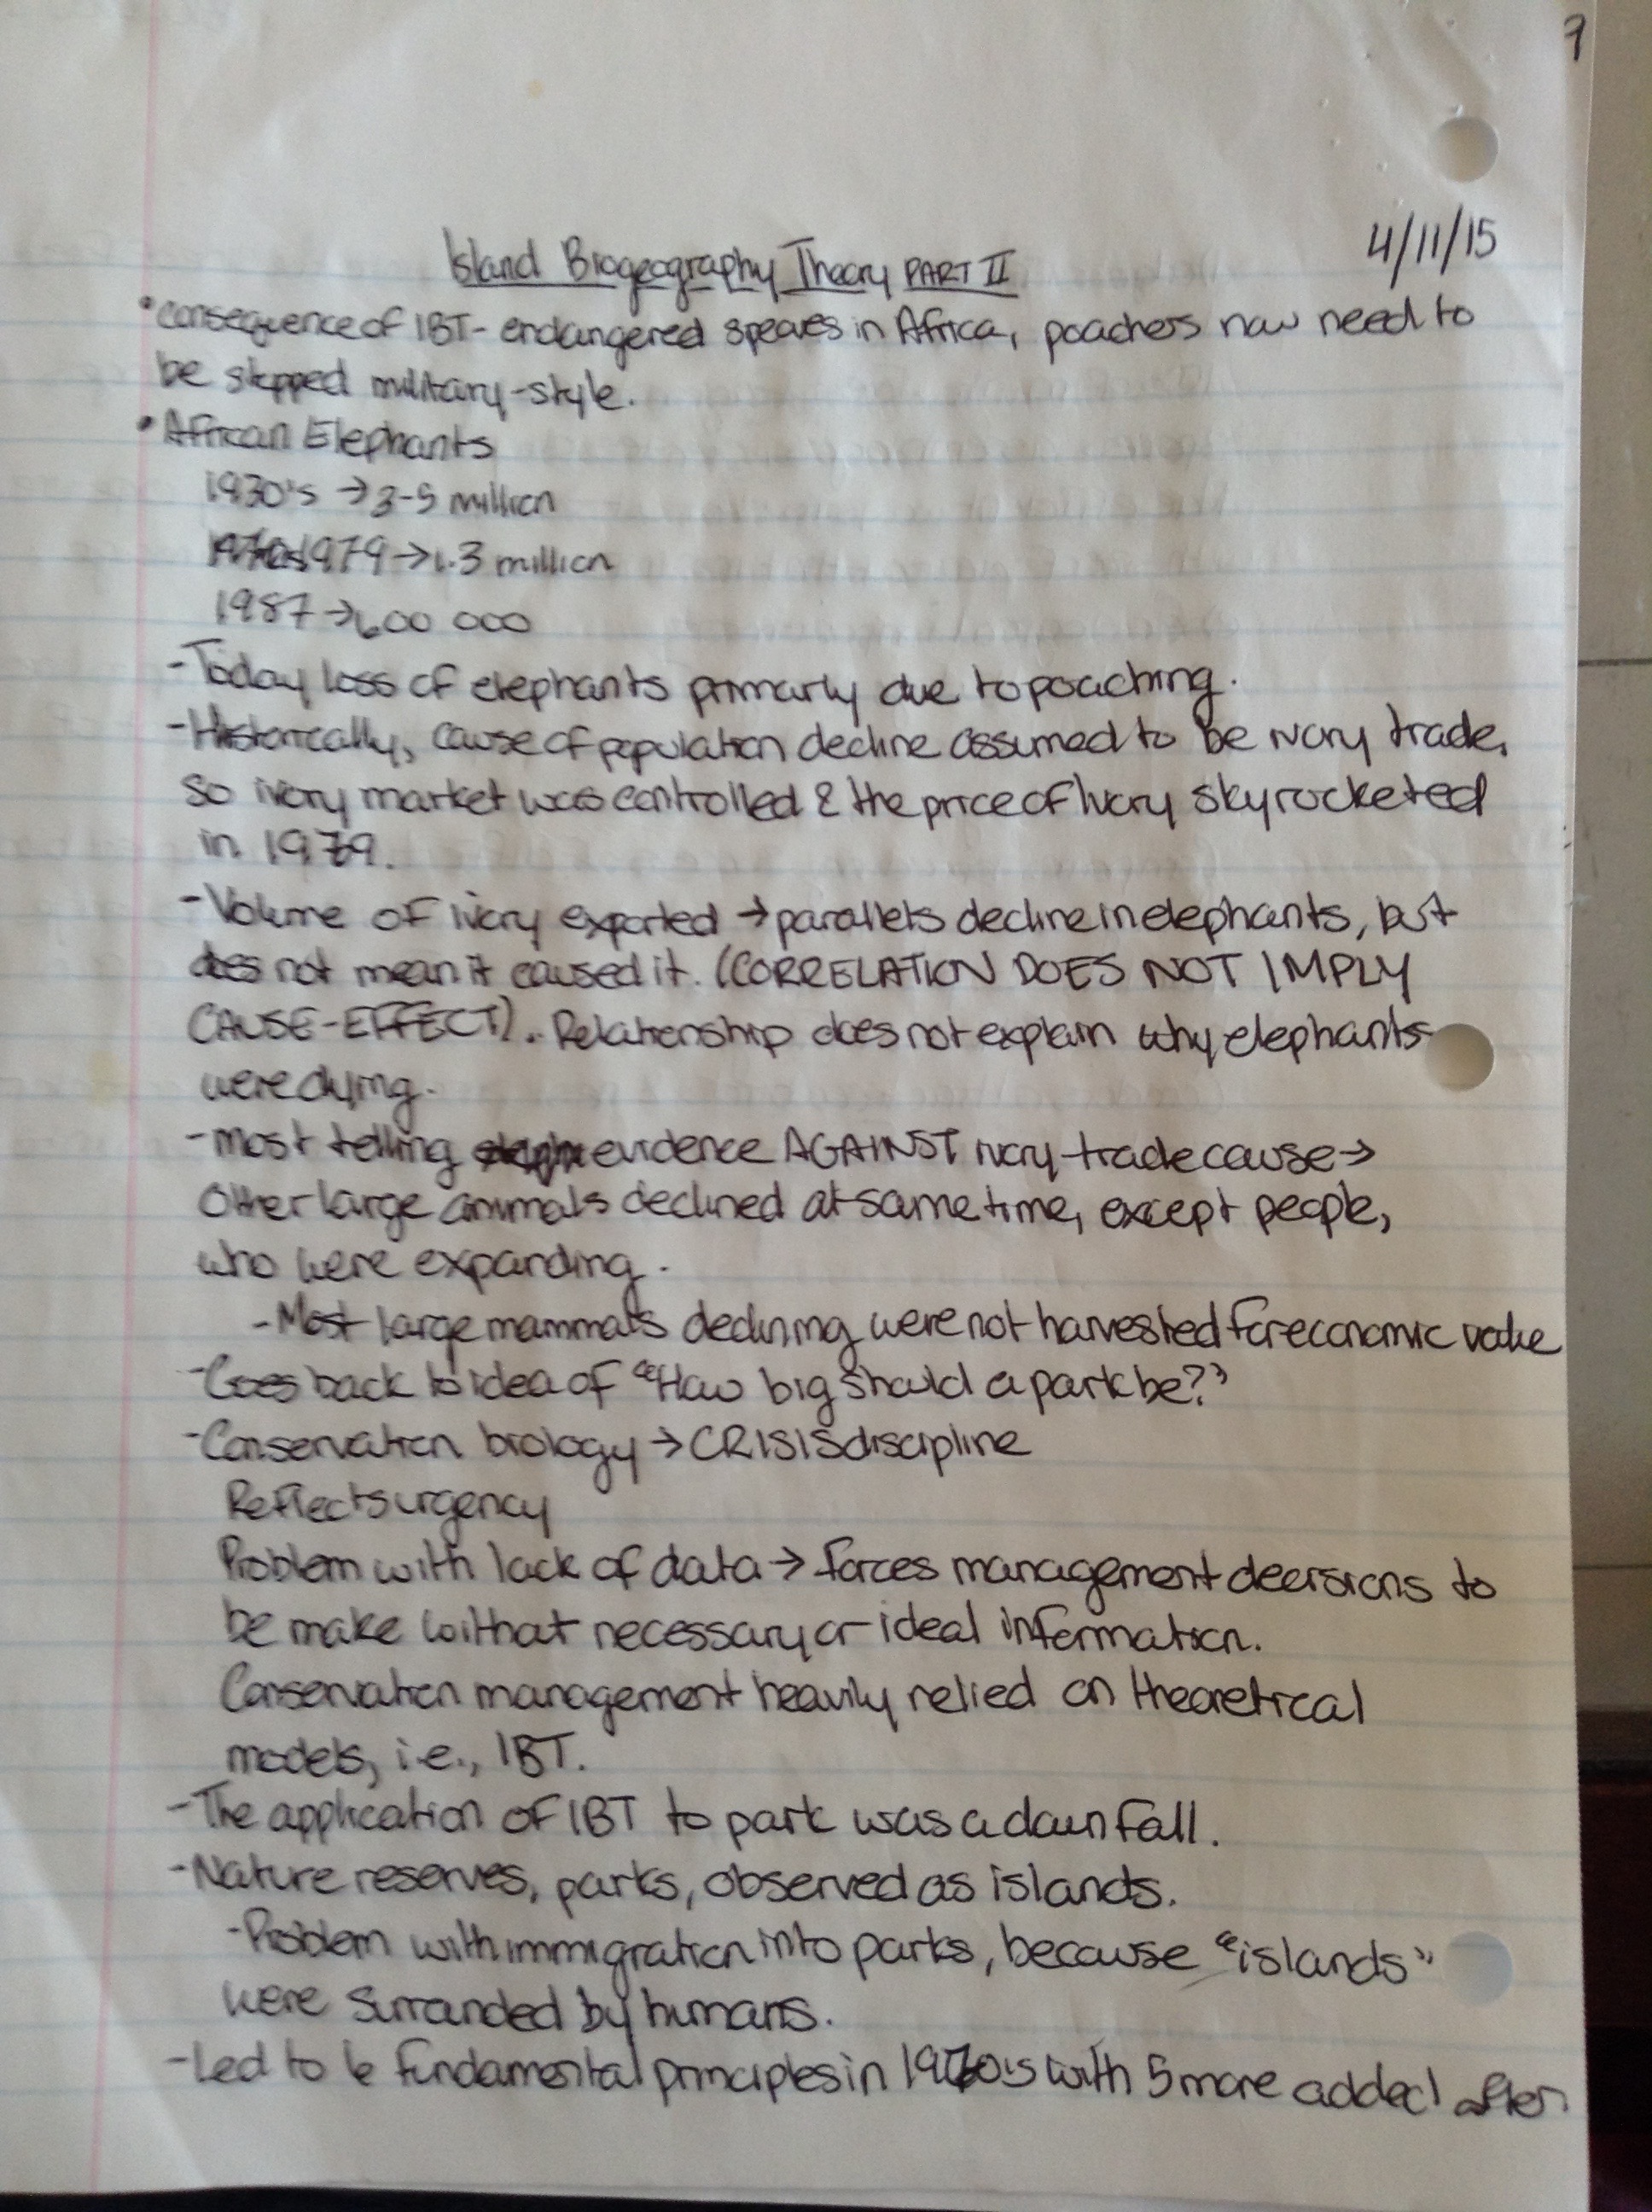 9
4/11/15
Island Biogeography Theory PART II
• consequence of IBT- endangered speaves in Africa, poachers now need to
be stopped military-style.
• African Elephants
1930's → 3-5 million
1979 → 1.3 million
1987 → 600 000
- Today loss of elephants primarly due to poaching.
- Historically, cause of population decline assumed to be ivory trade,
so ivory market was controlled & the price of ivory skyrocketed
in 1979.
- Volume of ivory exported → parallels decline in elephants, but
does not mean it caused it. (CORRELATION DOES NOT IMPLY
CAUSE-EFFECT). Relationship does not explain why elephants
were dying.
- most telling evidence AGAINST ivory-trade cause →
Other large animals declined at same time, except people,
who were expanding.
- Most large mammals declining were not harvested for economic value
- Goes back to idea of "How big should a park be?"
- Conservation biology → CRISIS discipline
Reflects urgency
Problem with lack of data → forces management decisions to
be make without necessary or ideal information.
Conservation management heavily relied on theoretical
models, i.e., IBT.
- The application of IBT to park was a downfall.
- Nature reserves, parks, observed as islands.
- Problem with immigration into parks, because "islands"
were surrounded by humans.
- Led to 6 fundamental principles in 1970's with 5 more added after.